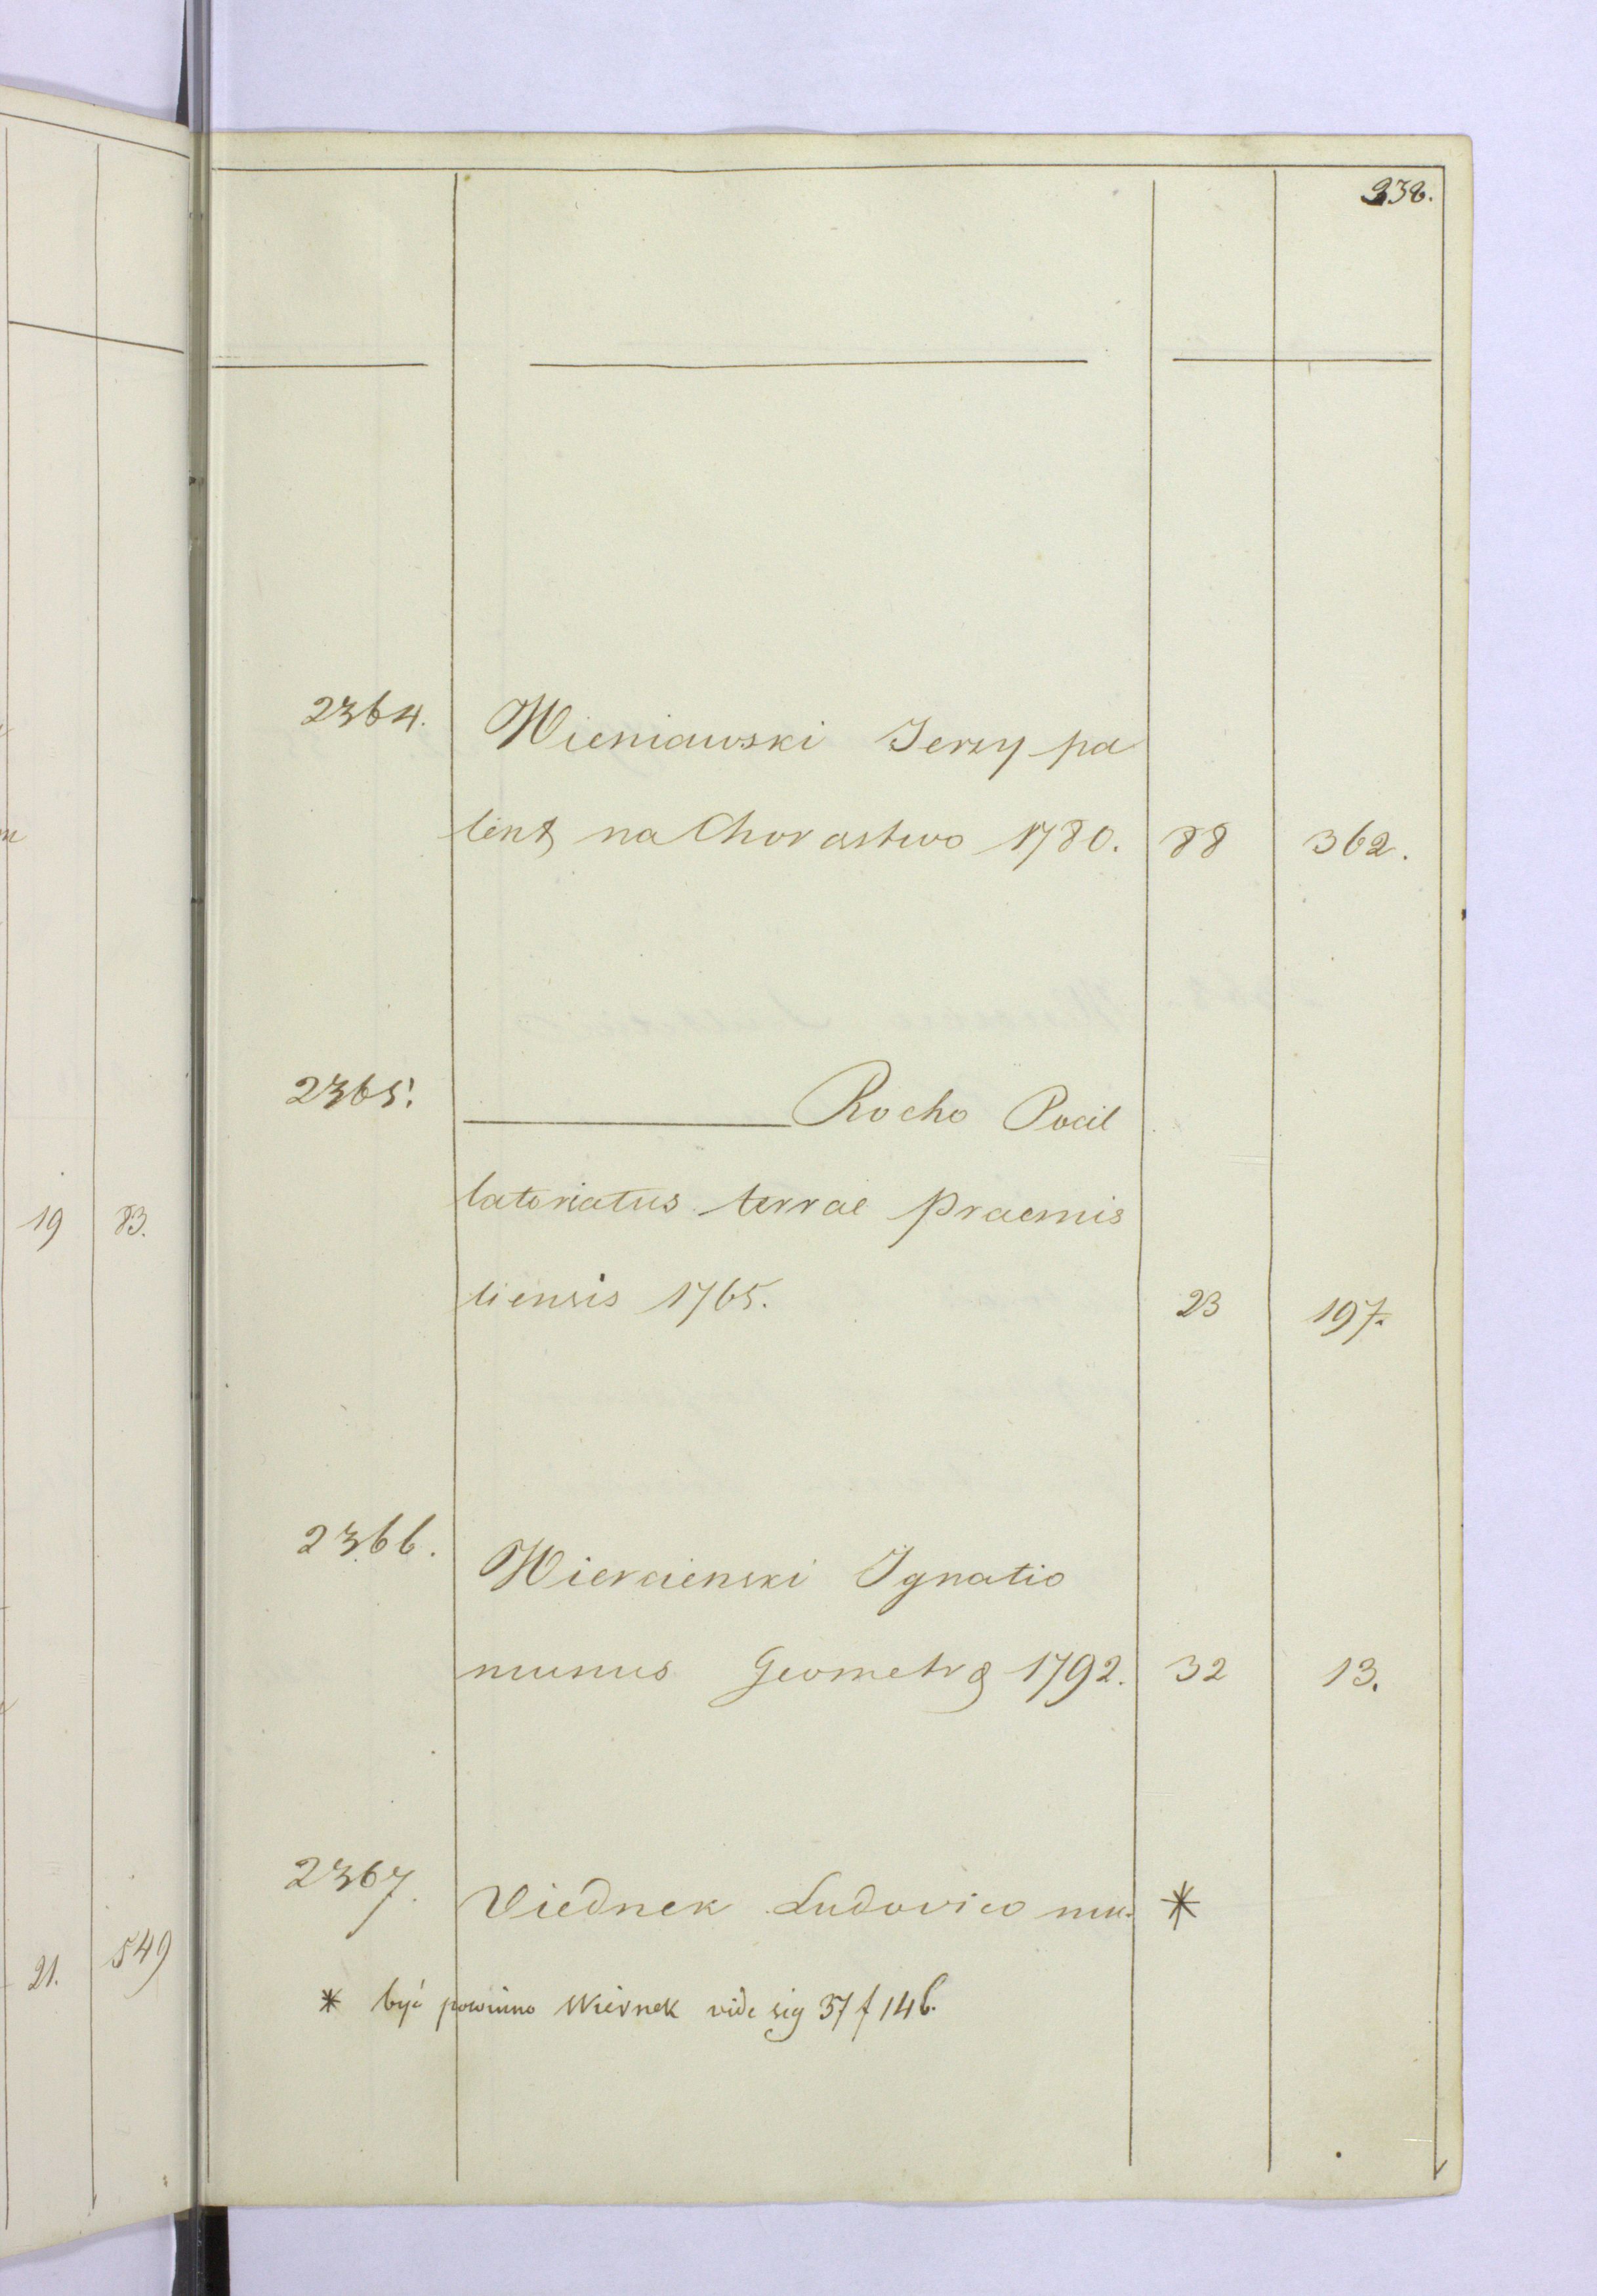 338.
2364. Wieniawski Jerzy pa
tent na Chorastwo 1780. 88 362.
2365. Rocho Pocil
latoriatus terrae Praemis
liensis 1765. 23 197.
2366. Wiercienski Ignatio
munus Geometrę 1792. 32 13.
2367. Viednek Ludovico mu- *
* być powinno Wiernek vide sig 37 f 146.
19 83.
21. 549